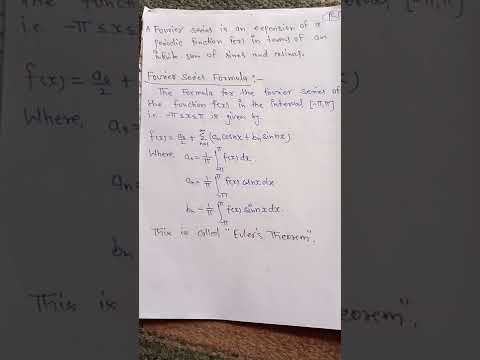 A Fourier series is an expansion of a
periodic function f(x) in terms of an
infinite sum of sines and cosines.
Fourier Series Formula:-
The Formula for the fourier series of
the function f(x) in the interval [-π,π]
i.e. -π≤x≤π is given by
f(x) = a₀/2 + ∞Σn=1 (an cosnx + bn sinnx)
Where, a₀ = 1/π ∫-π^π f(x) dx
an = 1/π ∫-π^π f(x) cosnx dx
bn = 1/π ∫-π^π f(x) sinnx dx.
This is called "Euler's Theorem".